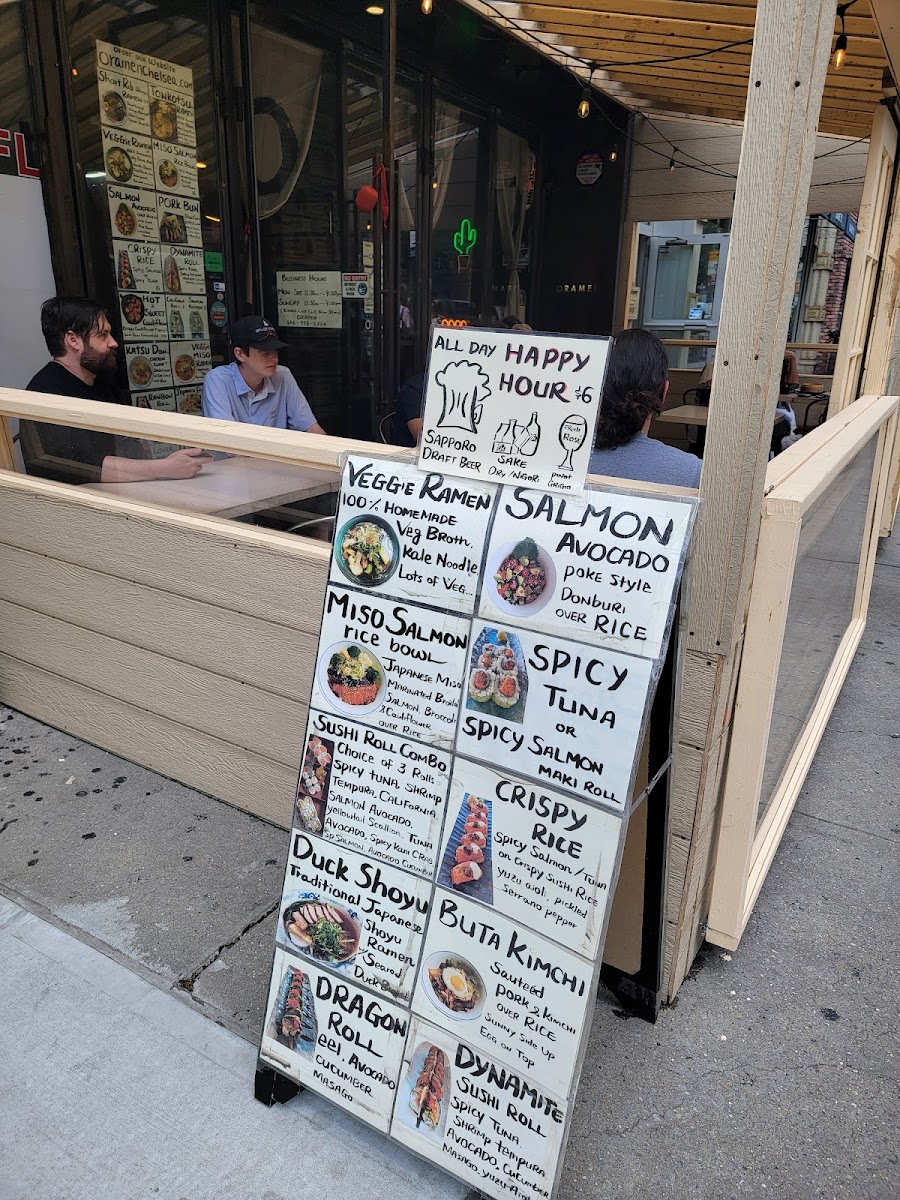 Order our Website
OramenChelsea.com
Short Rib
Ramen
Tonkotsu
Veggie Ramen
Miso Salmon
Salmon
Avocado
Pork Bun
Crispy
Rice
Dynamite
Roll
Hot &
Sweet
Cauliflower
Katsu Don
Veggie
Miso
Ramen
Rainbow Roll
FL
Business Hours
Mon-Sat
Sunday
NO ENTRY
ORAME
ALL DAY HAPPY
HOUR $6
SAPPORO
DRAFT BEER
SAKE
DRY/NIGORI
Rosé
PINOT
GRIGIO
Veggie Ramen
100% Homemade
Veg Broth,
Kale Noodle
Lots of Veg...
SALMON
AVOCADO
Poke Style
Donburi
over RICE
Miso Salmon
rice bowl
Japanese Miso
Marinated Broiled
Salmon, Broccoli
& Cauliflower
over Rice
SPICY
TUNA
OR
SPICY SALMON
MAKI ROLL
Sushi Roll Combo
Choice of 3 Rolls
Spicy tuna, Shrimp
Tempura, California,
Salmon Avocado,
yellowtail Scallion, Tuna
Avocado, Spicy Kani Crab
Sp Salmon, Avocado Cucumber
CRISPY
RICE
Spicy Salmon/Tuna
on Crispy Sushi Rice
yuzu aioli, pickled
Serrano pepper
Duck Shoyu
Traditional Japanese
Shoyu
Ramen
Seared
Duck
BUTA KIMCHI
Sauteed
Pork & Kimchi
over RICE
Sunny Side Up
Egg on Top
DRAGON
ROLL
eel, Avocado
cucumber
masago
DYNAMITE
SUSHI ROLL
Spicy Tuna,
Shrimp tempura
Avocado, Cucumber
Masago, Yuzu-Aioli